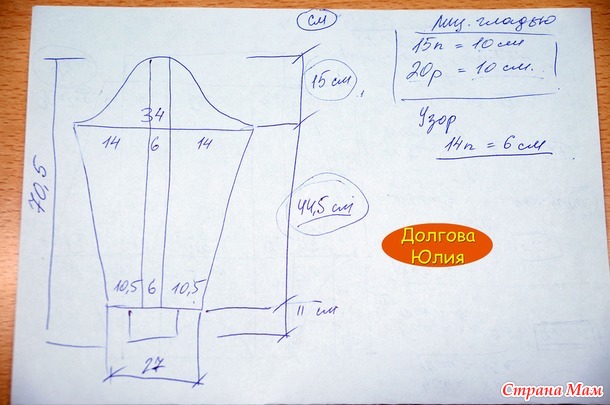 см
Лиц. гладью
15п = 10 см
20р = 10 см.
Узор
14п = 6 см
15 см
34
14 6 14
70,5
44,5 см
10,5 6 10,5
11 см
27
Долгова
Юлия
Страна Мам